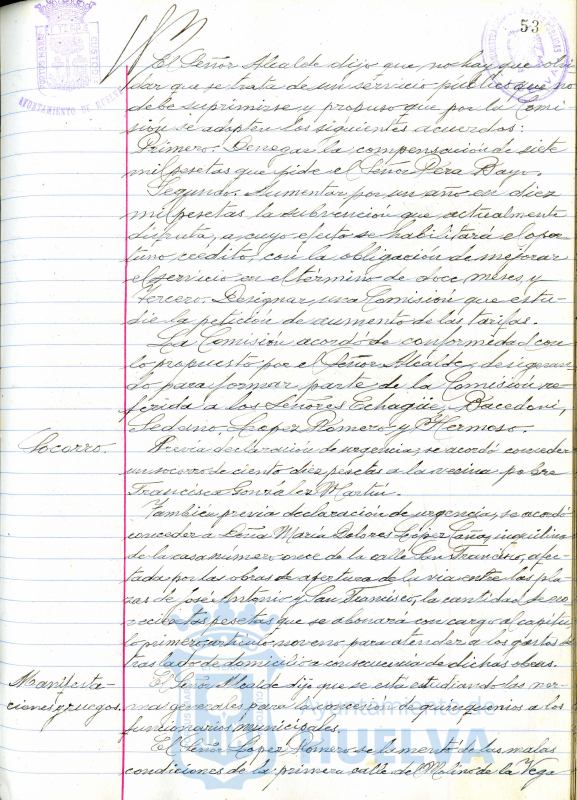 53
AYUNTAMIENTO DE HUELVA
El Señor Alcalde dijo que no hay que olvi-
dar que se trata de un servicio público que no
debe suprimirse y propuso que por la Comi-
sión se adopten los siguientes acuerdos:
Primero. Denegar la compensación de siete
mil pesetas que pide el Señor Pera Bayo.
Segundo. Aumentar por un año en diez
mil pesetas la subvención que actualmente
disfruta, a cuyo efecto se habilitará el opor-
tuno crédito, con la obligación de mejorar
el servicio en el término de doce meses, y
Tercero. Designar una Comisión que estu-
die la petición de aumento de las tarifas.
La Comisión acordó de conformidad con
lo propuesto por el Señor Alcalde, designan-
do para formar parte de la Comisión re-
ferida a los Señores Echagüe, Bacedoni,
Seduno, López Romero y Hermoso.
Socorro.
Previa declaración de urgencia, se acordó conceder
un socorro de ciento diez pesetas a la vecina pobre
Francisca González Martín.
También previa declaración de urgencia, se acordó
conceder a Doña María Dolores López Cañas, inquilina
de la casa número once de la calle San Francisco, afec-
tada por las obras de apertura de la vía entre las pla-
zas de José Antonio y San Francisco, la cantidad de no-
vecientas pesetas que se abonará con cargo al capítu-
lo primero, artículo noveno para atender a los gastos de
traslado de domicilio a consecuencia de dichas obras.
Manifesta-
ciones y ruegos.
El Señor Alcalde dijo que se está estudiando las nor-
mas generales para la concesión de quinquenios a los
funcionarios municipales.
El Señor López Romero se lamentó de las malas
condiciones de la primera calle del Molino de la Vega
Ayuntamiento de
HUELVA